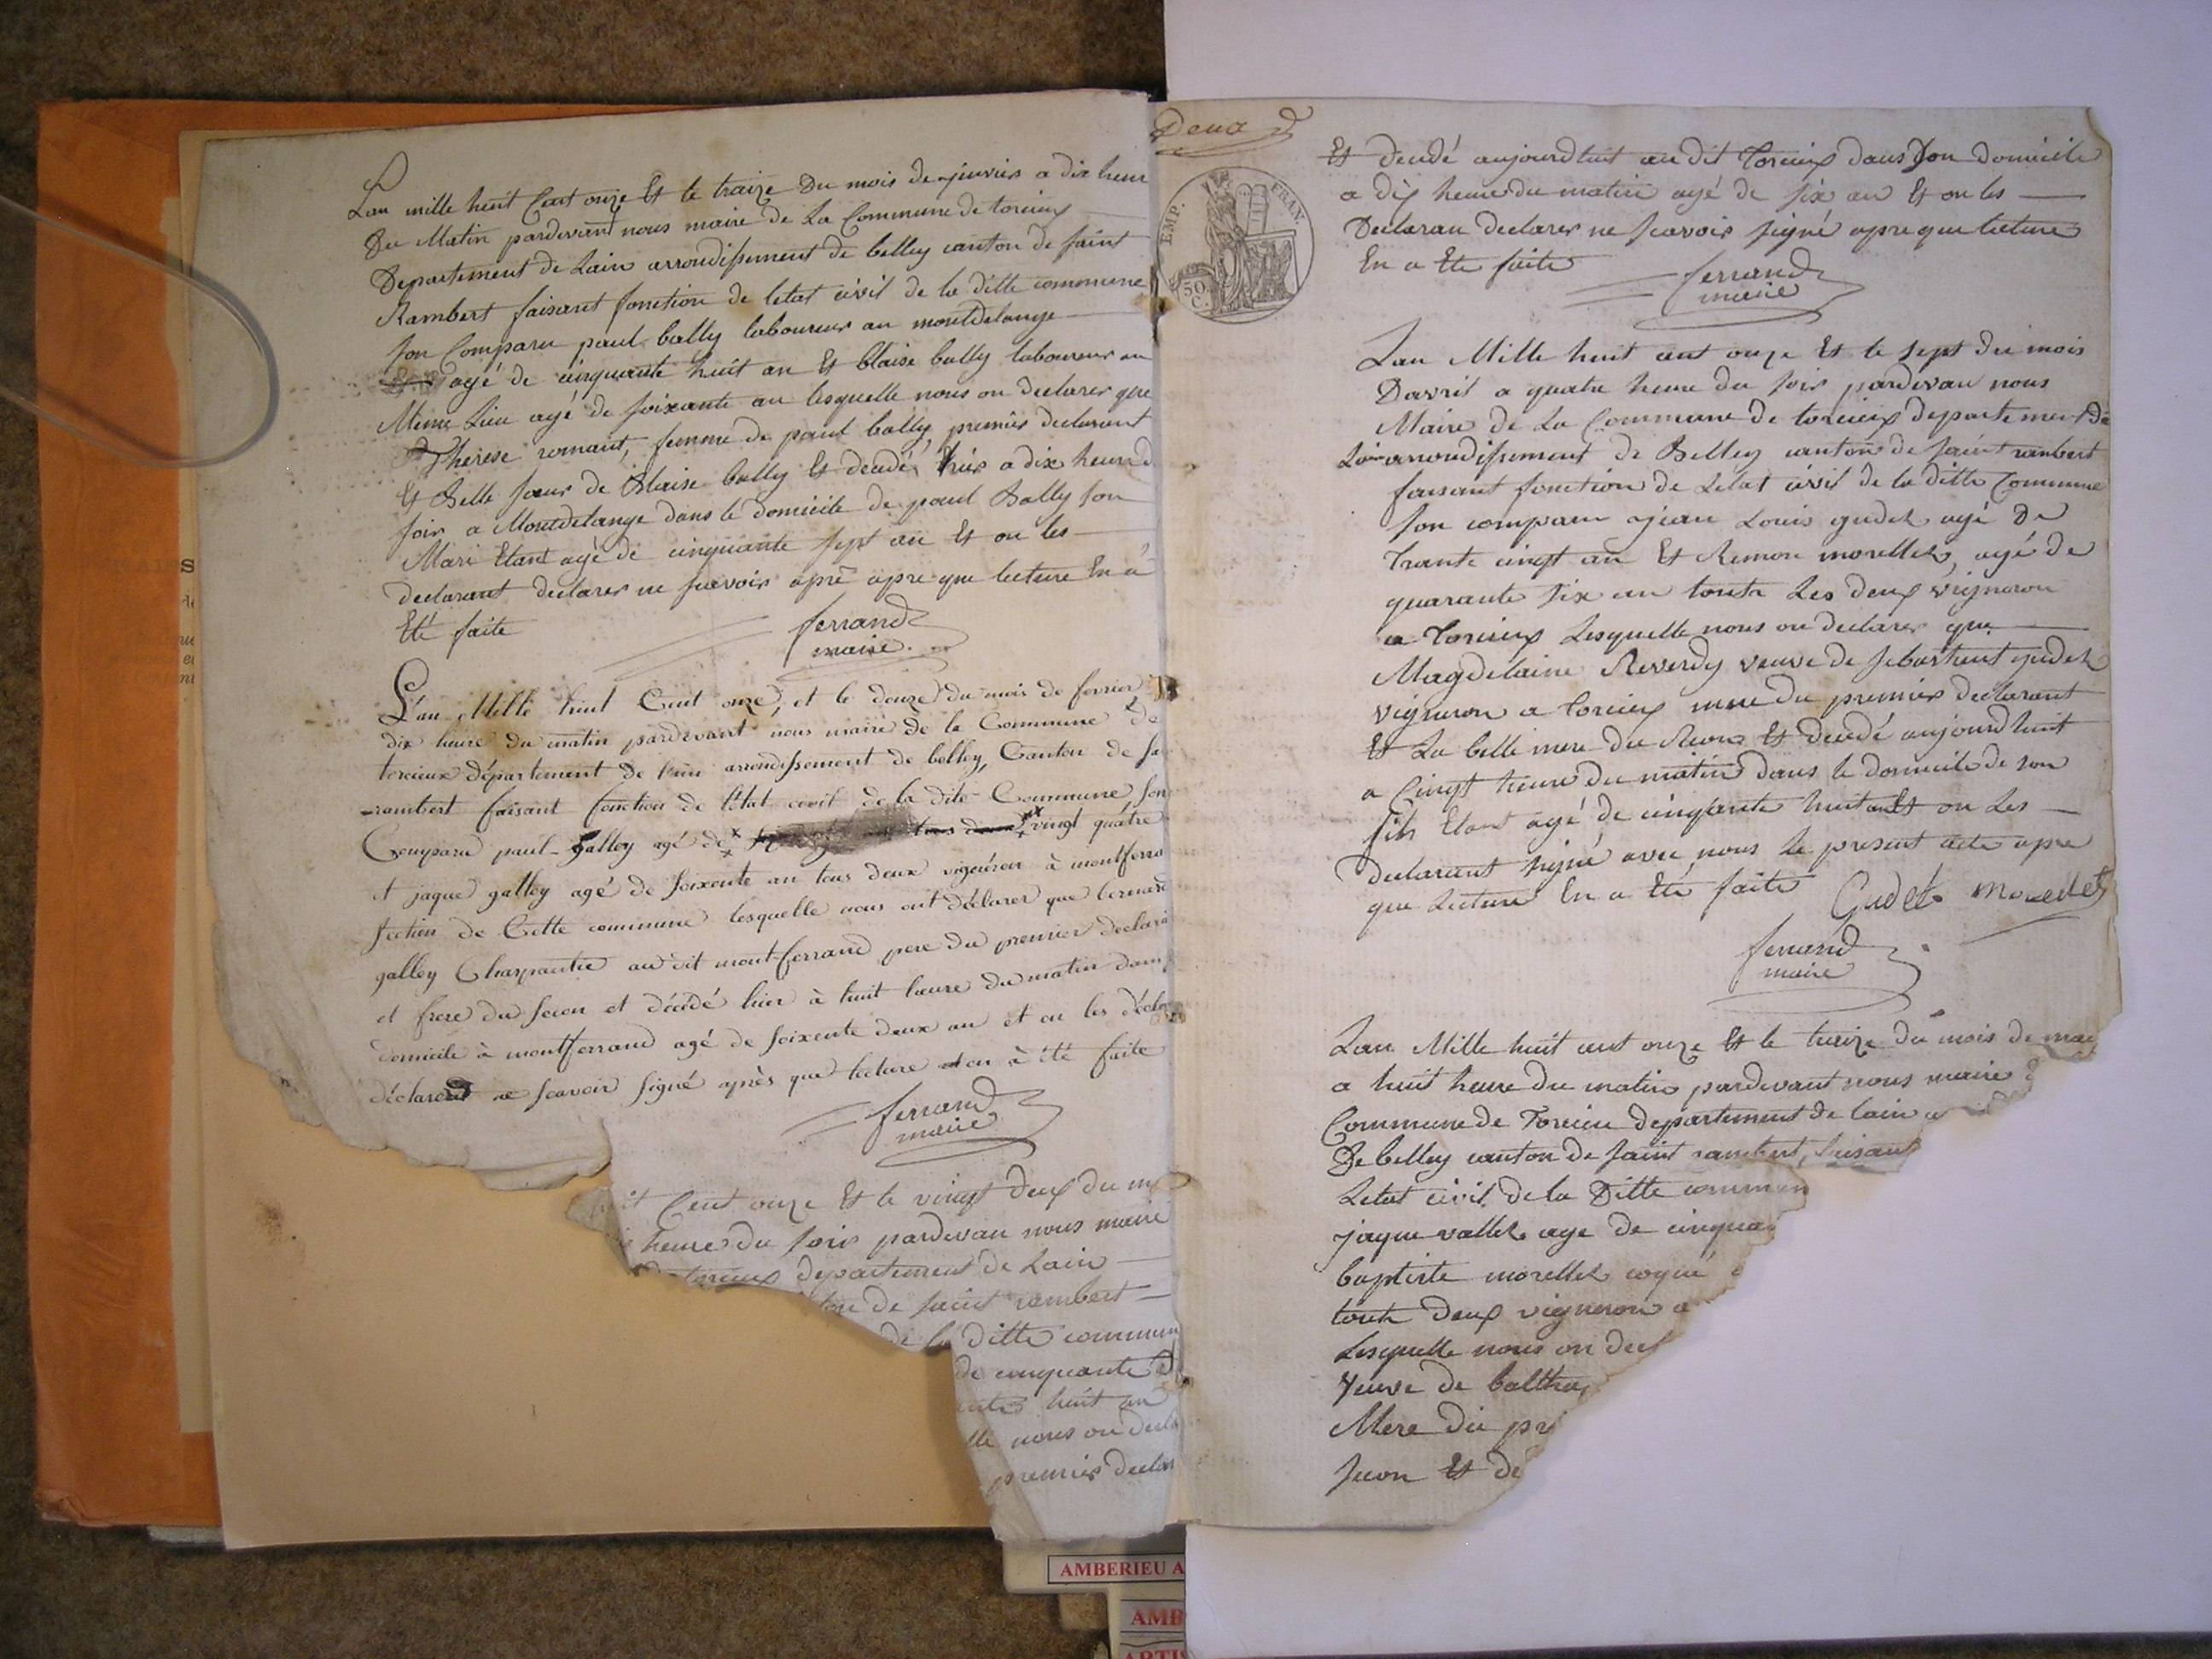 Lan mille huit Cent onze Et le traize Du mois de janvier a dix heure
Du Matin pardevant nous maire de La Commune de torcieux
Departement de Lain arrondissement de belley canton de saint
Rambert faisant fonction de letat civil de la ditte commune
son Comparu paul bally laboureur au montdelange
agé de cinquante huit an Et blaise bally laboureur au
Meme Lieu agé de soixante an lesquelle nous on declarer que
Therese romant, femme de paul bally premier declarant
Et Belle soeur de Blaise bally Et decedé hier a dix heure d
soir a Montdelange dans le domicile de paul Bally son
Mari Etant agé de cinquante sept an Et on les
declarant declarer ne scavoir aprè apre que lecture En a
Eté faite
ferrand
maire
L'an Mille huit Cent onze, et le douze du mois de fevrier
dix heure du matin pardevant nous maire de la Commune de
torcieux département de l'ain arrondissement de belley, Canton de sa
rambert faisant fonction de l'état civil de la dite Commune son
Comparu paul galley agé de vingt quatre
et jaque galley agé de soixente an tous deux vigneron à montferra
section de Cette commune lesquelle nous ont déclarer que bernard
galley Charpantie au dit montferrand pere du premier declara
et frere du secon et décédé hier à huit heure du matin dans
domicile à montferrand agé de soixente deux an et on les décla
déclarent ne scavoir signé après que lecture en à été faite
ferrand
maire
it Cent onze Et le vingt deux du m
heure du soir pardevan nous maire
torcieux departement de Lain
ton de saint rambert
de la ditte commun
de cinquante
huit an
lle nous on decla
premier declar
Deux
EMP. FRAN.
50 C.
Et decedé aujourdhuit au dit Torcieux dans son domicile
a dix heure du matin agé de six an Et on les
Declaran declarer ne scavoir signé apre que lecture
En a Eté faite
ferrand
maire
Lan Mille huit cent onze Et le sept du mois
Davril a quatre heure du soir pardevan nous
Maire de La Commune de torcieux departement de
Lain arrondissement de Belley canton de saint rambert
faisant fonction de Letat civil de la ditte Commune
son comparu jean Louis gudet agé De
Trante cinqt an Et Remon morellet, agé de
quarante six an toute Les deux vigneron
a Torcieux Lesquelle nous on declarer que
Magdelaine Reverdy veuve de sebastient gudet
vigneron a torcieux mere du premier declarant
Et La belle mere du secon Et decedé aujourdhuit
a Cinqt heure du matin dans le domicile de son
fils Etant agé de cinqante huit an Et on Les
declarant signé avec nous le present acte apre
que Lecture En a Eté faite Gudet morellet
ferrand
maire
Lan Mille huit cent onze Et le treize du mois de mai
a huit heure du matin pardevant nous maire d
Commune de Torcieu departement de lain a
De belley canton de saint rambert, faisant
Letat civil de la Ditte commun
jaque vallet age de cinquan
baptiste morellet
toute deux vigneron a
Lesquelle nous on decl
Veuve de baltha
Mere du pr
secon Et de
AMBERIEU A
AMB
ARTIS